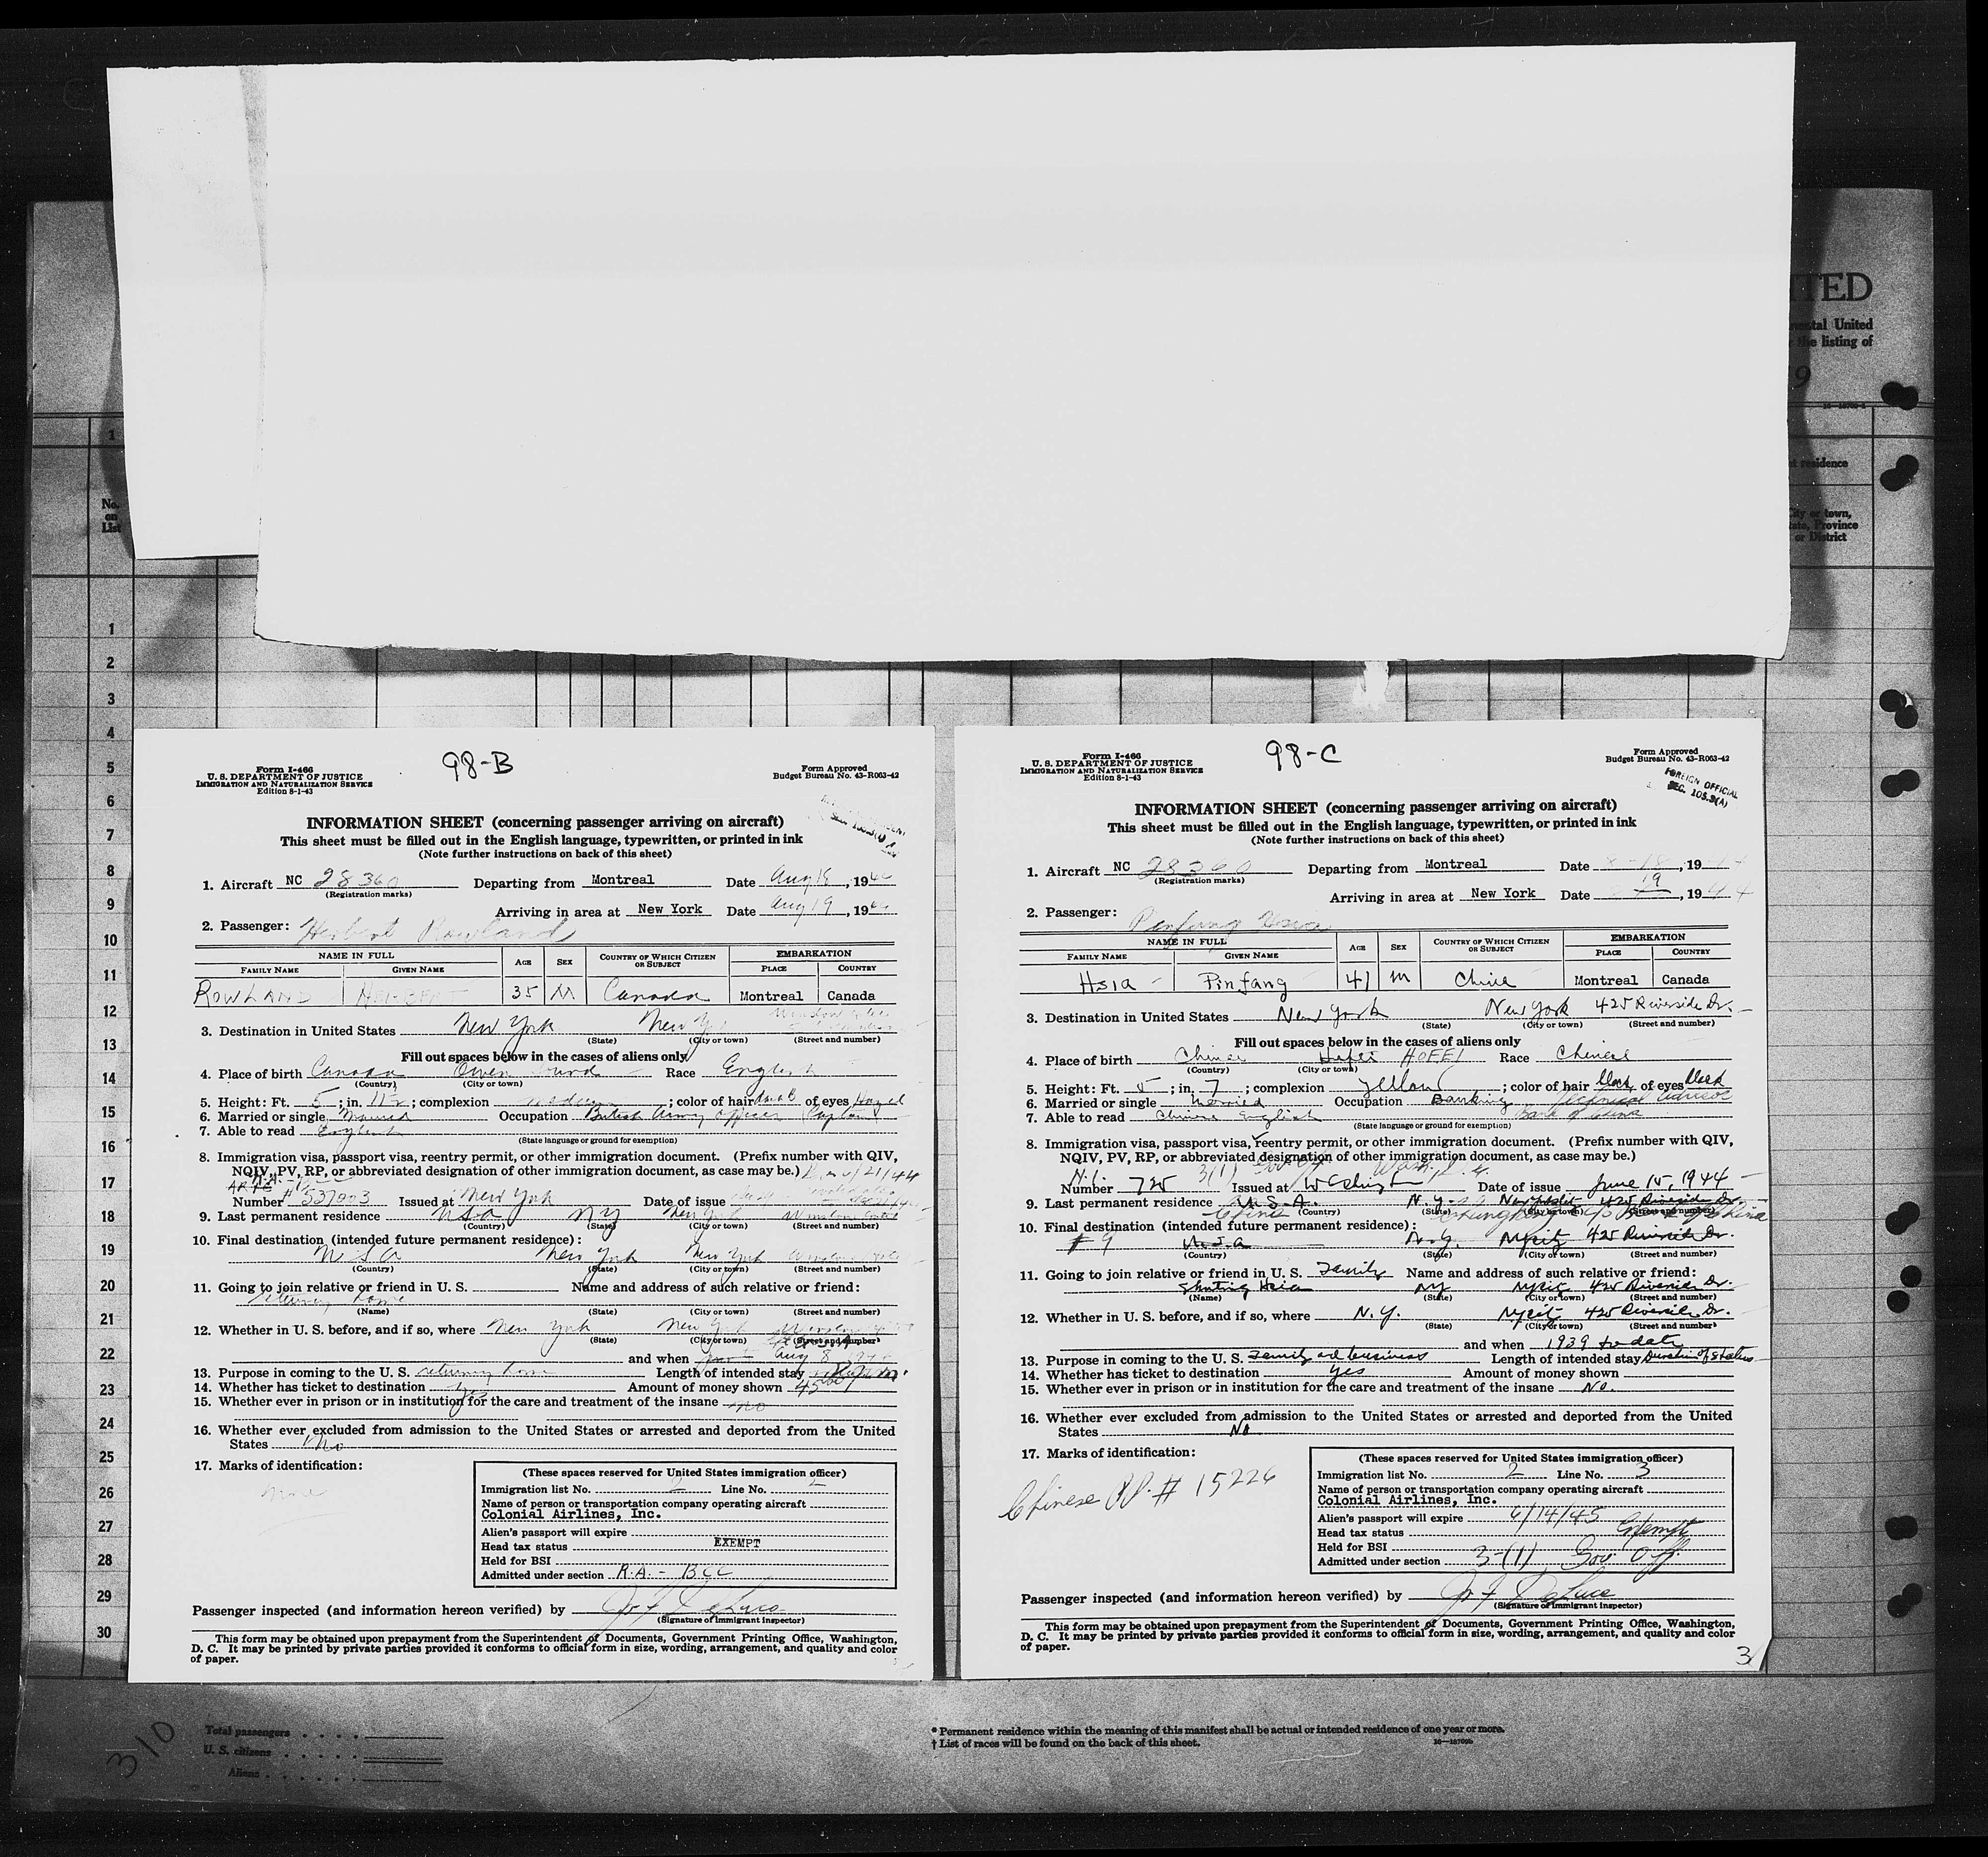 ITED
ental United
the listing of
9
1
t residence
No.
on
List
City or town,
ate, Province
or District
1
2
3
4
5
6
7
8
9
10
11
12
13
14
15
16
17
18
19
20
21
22
23
24
25
26
27
28
29
30
98-B
Form I-466
U. S. DEPARTMENT OF JUSTICE
IMMIGRATION AND NATURALIZATION SERVICE
Edition 8-1-43
Form Approved
Budget Bureau No. 43-R063-42
INFORMATION SHEET (concerning passenger arriving on aircraft)
This sheet must be filled out in the English language, typewritten, or printed in ink
(Note further instructions on back of this sheet)
1. Aircraft NC 28360 Departing from Montreal Date Aug 18, 1944
(Registration marks)
Arriving in area at New York Date Aug 19, 1944
2. Passenger: Herbert Rowland
NAME IN FULL AGE SEX COUNTRY OF WHICH CITIZEN OR SUBJECT EMBARKATION
FAMILY NAME GIVEN NAME PLACE COUNTRY
ROWLAND HERBERT 35 M Canada Montreal Canada
3. Destination in United States New York New York
(State) (City or town) (Street and number)
Fill out spaces below in the cases of aliens only
4. Place of birth Canada Owen Sound Race English
(Country) (City or town)
5. Height: Ft. 5; in. 11½; complexion medium; color of hair dark of eyes Hazel
6. Married or single Married Occupation British Army officer (Captain)
7. Able to read English
(State language or ground for exemption)
8. Immigration visa, passport visa, reentry permit, or other immigration document. (Prefix number with QIV,
NQIV, PV, RP, or abbreviated designation of other immigration document, as case may be.)
Number # 537003 Issued at New York Date of issue
9. Last permanent residence USA NY New York
(Country) (State) (City or town) (Street and number)
10. Final destination (intended future permanent residence):
USA New York New York
(Country) (State) (City or town) (Street and number)
11. Going to join relative or friend in U. S. Name and address of such relative or friend:
returning home
(Name) (State) (City or town) (Street and number)
12. Whether in U. S. before, and if so, where New York New York
(State) (City or town) (Street and number)
and when Aug 8
13. Purpose in coming to the U. S. returning home Length of intended stay
14. Whether has ticket to destination Yes Amount of money shown 45
15. Whether ever in prison or in institution for the care and treatment of the insane no
16. Whether ever excluded from admission to the United States or arrested and deported from the United
States No
17. Marks of identification:
none
(These spaces reserved for United States immigration officer)
Immigration list No. 2 Line No. 2
Name of person or transportation company operating aircraft
Colonial Airlines, Inc.
Alien's passport will expire
Head tax status EXEMPT
Held for BSI
Admitted under section R.A. - BCC
Passenger inspected (and information hereon verified) by
(Signature of immigrant inspector)
This form may be obtained upon prepayment from the Superintendent of Documents, Government Printing Office, Washington,
D. C. It may be printed by private parties provided it conforms to official form in size, wording, arrangement, and quality and color
of paper.
98-C
Form I-466
U. S. DEPARTMENT OF JUSTICE
IMMIGRATION AND NATURALIZATION SERVICE
Edition 8-1-43
Form Approved
Budget Bureau No. 43-R063-42
FOREIGN OFFICIAL
SEC. 105.3(A)
INFORMATION SHEET (concerning passenger arriving on aircraft)
This sheet must be filled out in the English language, typewritten, or printed in ink
(Note further instructions on back of this sheet)
1. Aircraft NC 28360 Departing from Montreal Date 8-18, 1944
(Registration marks)
Arriving in area at New York Date 19, 1944
2. Passenger: Pinfang Hsia
NAME IN FULL AGE SEX COUNTRY OF WHICH CITIZEN OR SUBJECT EMBARKATION
FAMILY NAME GIVEN NAME PLACE COUNTRY
Hsia Pinfang 41 M China Montreal Canada
3. Destination in United States New York New York 425 Riverside Dr.
(State) (City or town) (Street and number)
Fill out spaces below in the cases of aliens only
4. Place of birth China Hofei HOFEI Race Chinese
(Country) (City or town)
5. Height: Ft. 5; in. 7; complexion yellow; color of hair black of eyes black
6. Married or single Married Occupation Banking Technical Advisor
7. Able to read Chinese English Bank of China
(State language or ground for exemption)
8. Immigration visa, passport visa, reentry permit, or other immigration document. (Prefix number with QIV,
NQIV, PV, RP, or abbreviated designation of other immigration document, as case may be.)
3(1) Gov Off Wash, D.C.
Number 725 Issued at Washington Date of issue June 15, 1944
9. Last permanent residence U.S.A. N.Y. 425 Riverside Dr.
China Chungking c/o Bank of China
(Country) (State) (City or town) (Street and number)
10. Final destination (intended future permanent residence):
# 9 U.S.A N.Y. NYCity 425 Riverside Dr.
(Country) (State) (City or town) (Street and number)
11. Going to join relative or friend in U. S. Family Name and address of such relative or friend:
Shuting Hsia NY NYCity 425 Riverside Dr.
(Name) (State) (City or town) (Street and number)
12. Whether in U. S. before, and if so, where N.Y. NYCity 425 Riverside Dr.
(State) (City or town) (Street and number)
and when 1939 to date
13. Purpose in coming to the U. S. Family and business Length of intended stay Duration of status
14. Whether has ticket to destination Yes Amount of money shown
15. Whether ever in prison or in institution for the care and treatment of the insane No.
16. Whether ever excluded from admission to the United States or arrested and deported from the United
States No
17. Marks of identification:
Chinese PP. # 15226
(These spaces reserved for United States immigration officer)
Immigration list No. 2 Line No. 3
Name of person or transportation company operating aircraft
Colonial Airlines, Inc.
Alien's passport will expire 6/14/45
Head tax status Exempt
Held for BSI
Admitted under section 3-(1) Gov. Off.
Passenger inspected (and information hereon verified) by
(Signature of immigrant inspector)
This form may be obtained upon prepayment from the Superintendent of Documents, Government Printing Office, Washington,
D. C. It may be printed by private parties provided it conforms to official form in size, wording, arrangement, and quality and color
of paper.
3
310
Total passengers
U. S. citizens
Aliens
* Permanent residence within the meaning of this manifest shall be actual or intended residence of one year or more.
† List of races will be found on the back of this sheet.